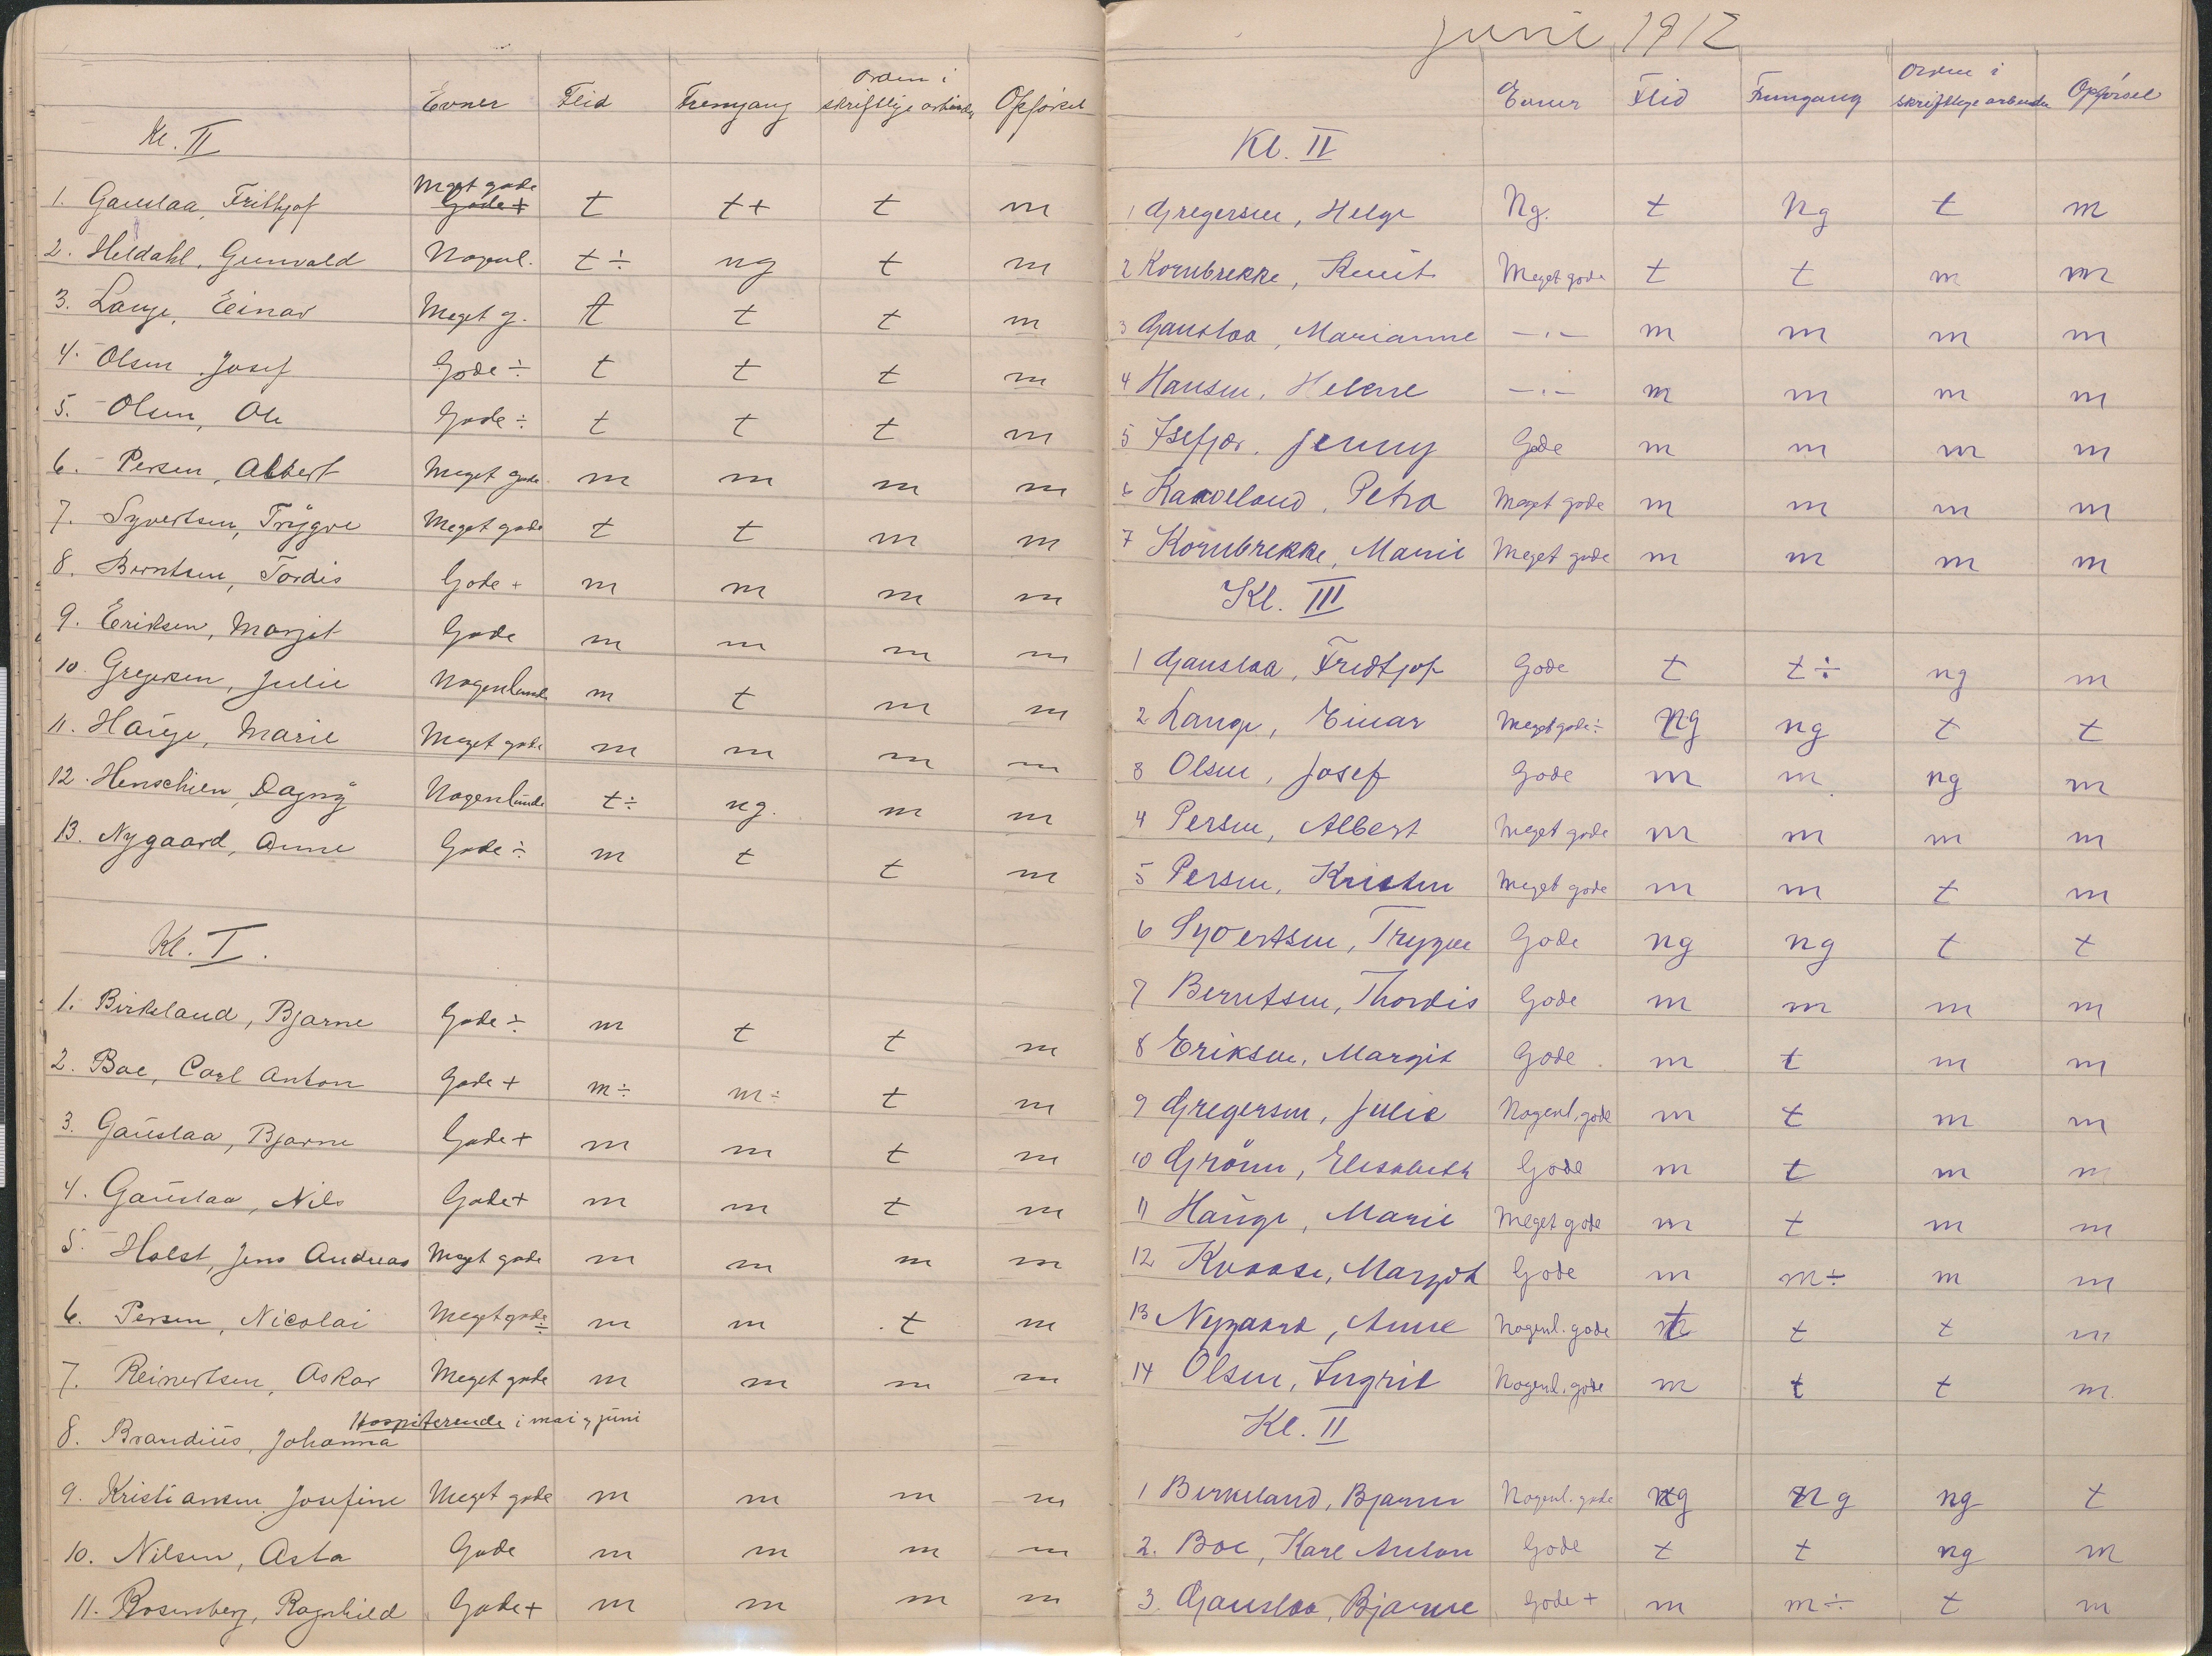 Evner Flid Fremgang Orden i skriftlige arbeider Opførsel
Kl. II
1. Gauslaa, Frithjof Meget gode Gode + t t+ t m
2. Heldahl, Gunvald Nogenl. t÷ ng t m
3. Lange, Einar Meget g. t t t m
4. Olsen, Josef Gode ÷ t t t m
5. Olsen, Ole Gode ÷ t t t m
6. Persen, Albert Meget gode m m m m
7. Syvertsen, Trygve Meget gode t t m m
8. Berntsen, Tordis Gode + m m m m
9. Eriksen, Margit Gode m m m m
10. Gregersen, Julie Nogenlunde m t m m
11. Hauge, Marie Meget gode m m m m
12. Henschien, Dagny Nogenlunde t÷ ng. m m
13. Nygaard, Anne Gode ÷ m t t m
Kl. I.
1. Birkeland, Bjarne Gode ÷ m t t m
2. Boe, Carl Anton Gode + m÷ m÷ t m
3. Gauslaa, Bjarne Gode + m m t m
4. Gauslaa, Nils Gode + m m t m
5. Holst, Jens Andreas Meget gode m m m m
6. Persen, Nicolai Meget gode ÷ m m t m
7. Reinertsen, Oskar Meget gode m m m m
8. Brandius, Johanna Hospiterende i mai og juni
9. Kristiansen, Josefine Meget gode m m m m
10. Nilsen, Asta Gode m m m m
11. Rosenberg, Ragnhild Gode + m m m m
Juni 1912
Evner Flid Fremgang Orden i skriftlige arbeider Opførsel
Kl. II
1 Gregersen, Helge Ng. t Ng t m
2 Kornbrekke, Knut Meget gode t t m m
3 Gauslaa, Marianne —·— m m m m
4 Hansen, Helene —·— m m m m
5 Isefjær, Jenny Gode m m m m
6 Kaaveland, Petra Meget gode m m m m
7 Kornbrekke, Marie Meget gode m m m m
Kl. III
1 Gauslaa, Fredtjof Gode t t÷ ng m
2 Lange, Einar Meget gode ÷ ng ng t t
3 Olsen, Josef Gode m m ng m
4 Persen, Albert Meget gode m m m m
5 Persen, Kristen Meget gode m m t m
6 Syvertsen, Trygve Gode ng ng t t
7 Berntsen, Thordis Gode m m m m
8 Eriksen, Margit Gode m t m m
9 Gregersen, Julie Nogenl. gode m t m m
10 Grönn, Elisabeth Gode m t m m
11 Hauge, Marie Meget gode m t m m
12 Kvaase, Margot Gode m m÷ m m
13 Nygaard, Anne Nogenl. gode t t t m
14 Olsen, Ingrid Nogenl. gode m t t m
Kl. II
1 Birkeland, Bjarne Nogenl. gode ng ng ng t
2. Boe, Karl Anton Gode t t ng m
3. Gauslaa, Bjarne Gode + m m÷ t m